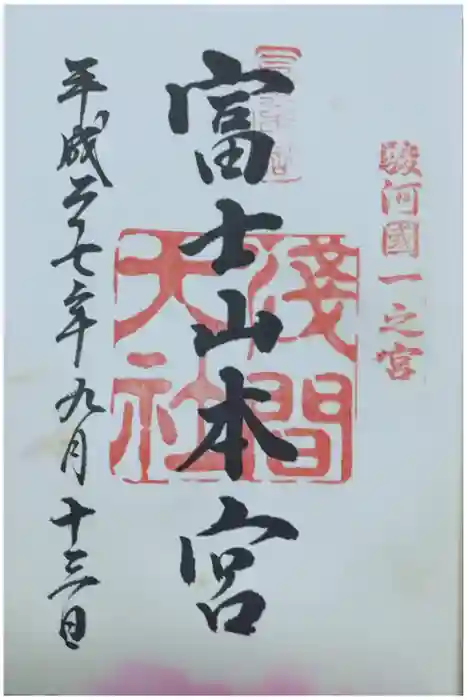 駿河國一之宮
富士山本宮
淺間大社
平成二十七年九月十三日